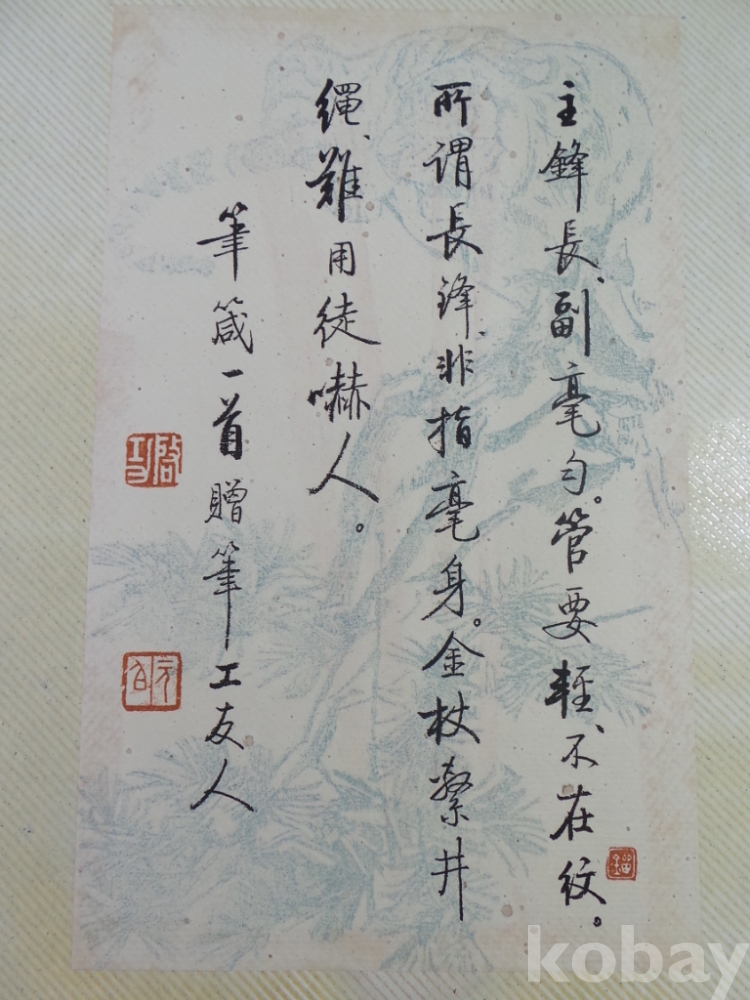 主鋒長、副毫勻。管要輕、不在紋。
所謂長鋒、非指毫身。金杖繫井
繩、難用徒嚇人。
筆箴一首贈筆工友人
啟功
元白
kobay